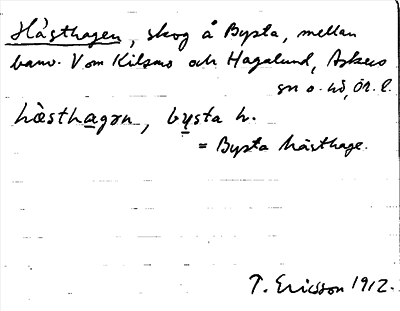 Hästhagen, skog å Bysta, mellan
banv. V om Kilsmo och Hagalund, Askers
sn o. hd, Ör. l.
hæsthagən, bysta h.
= Bysta hästhage.
T. Ericsson 1912.